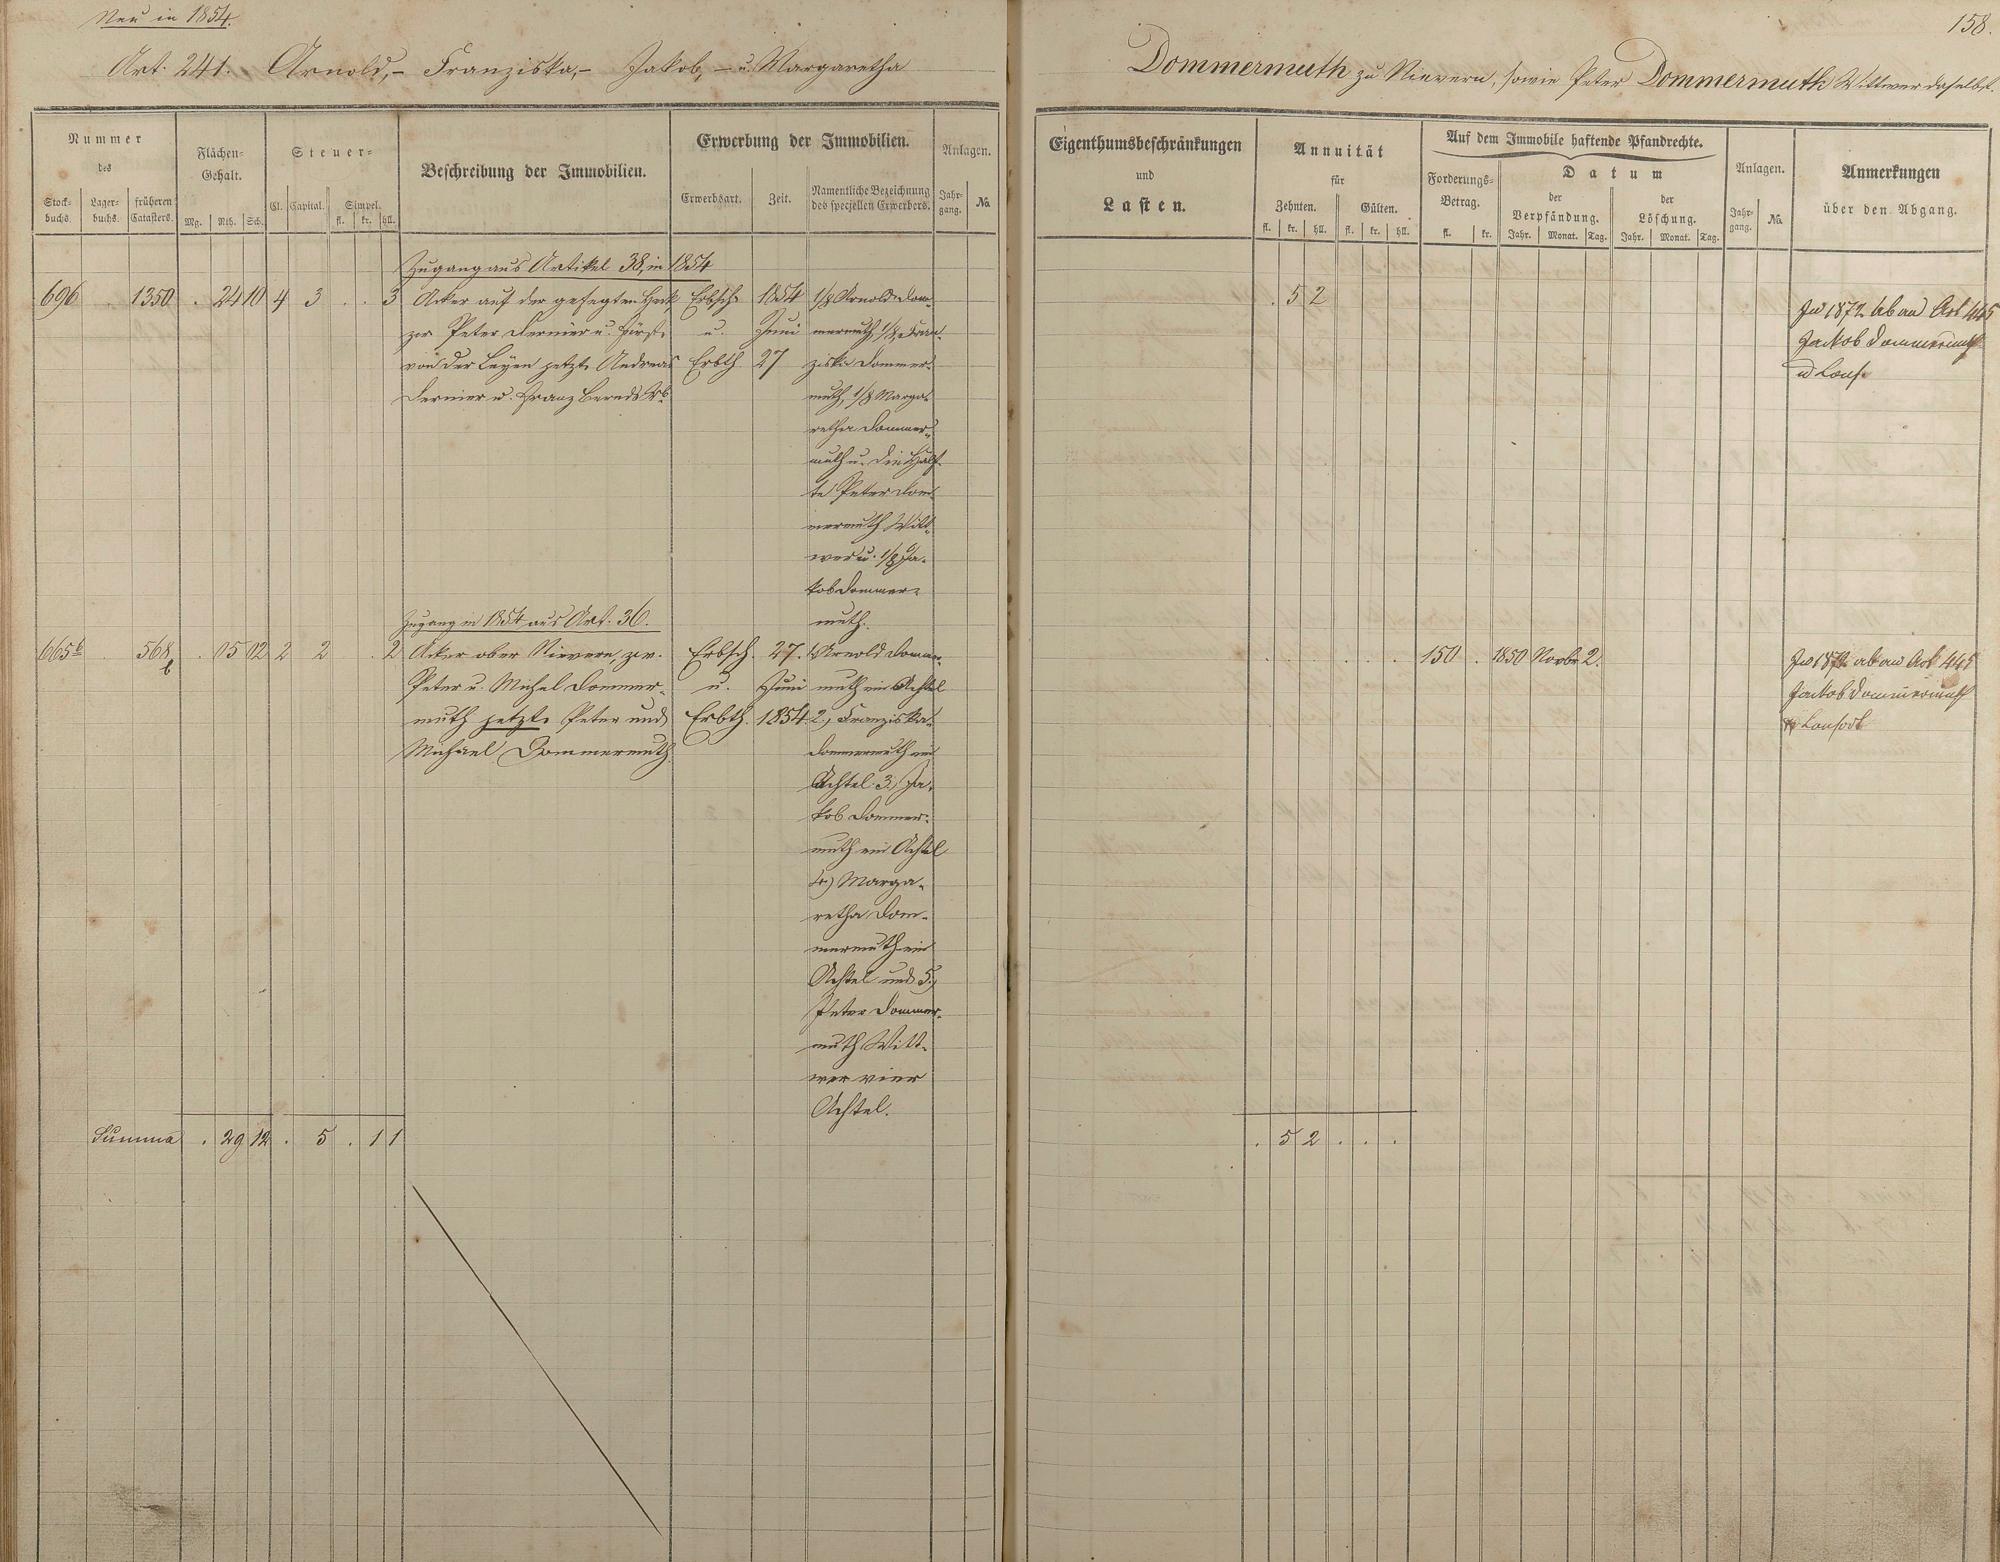 Neu in 1854.
158.
Art. 241. Arnold,- Franziska,- Jakob,- u. Margaretha
Dommermuth zu Nievern, sowie Peter Dommermuth Wittwer daselbst.
Nummer
des
Stock-
buchs.
Lager-
buchs.
früheren
Catasters.
Flächen-
Gehalt.
Mg. Rth. Sch.
Steuer-
Cl. Capital. Simpel.
fl. kr. hll.
Beschreibung der Immobilien.
Erwerbung der Immobilien.
Erwerbsart. Zeit.
Namentliche Bezeichnung
des speciellen Erwerbers.
Anlagen.
Jahr-
gang.
No.
Zugang aus Artikel 38, in 1854
696 . 1350 . 24 10 4 3 . . 3
Acker auf der gesegten Heck
zw Peter Dernier u. Fürst.
von der Leyen jetzt Andreas
Dernier u. Franz Bernds Wb.
Erbsch.
u.
Erbth.
1854
Juni
27
1/8 Arnold Dom-
mermuth, 1/8 Fran-
ziska Dommer-
muth, 1/8 Marga-
retha Dommer-
muth u. die Hälf-
te Peter Dom-
mermuth Witt-
wer u. 1/8 Ja-
kob Dommer-
muth.
Zugang in 1854 aus Art. 36.
665b . 568b . 05 02 2 2 . . 2
Acker ober Nievern, zw.
Peter u. Michel Dommer-
muth jetzt Peter und
Michael Dommermuth
Erbsch.
u.
Erbth.
27.
Juni
1854
1. Arnold Dommer-
muth ein Achtel
2., Franziska
Dommermuth ein
Achtel 3., Ja-
kob Dommer-
muth ein Achtel
4.) Marga-
retha Dom-
mermuth ein
Achtel und 5.)
Peter Dommer-
muth Witt-
wer vier
Achtel.
Summa . 29 12 . 5 . 1 1
Eigenthumsbeschränkungen
und
Lasten.
Annuität
für
Zehnten. Gülten.
fl. kr. hll. fl. kr. hll.
Auf dem Immobile haftende Pfandrechte.
Forderungs-
Betrag.
fl. kr.
Datum
der
Verpfändung.
Jahr. Monat. Tag.
der
Löschung.
Jahr. Monat. Tag.
Anlagen.
Jahr-
gang.
No.
Anmerkungen
über den Abgang.
. 5 2
In 1872 ab an Art 445
Jakob Dommermuth
u Cons.
. . . . . . 150 . 1850 Novbr 2.
In 1872 ab an Art 445
Jakob Dommermuth
u Consort
. 5 2 . . .